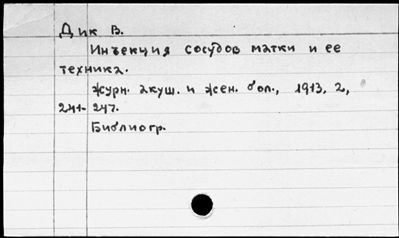 Дик В.
Инъекция сосудов матки и ее
техника.
журн. акуш. и жен. бол., 1913, 2,
241-247.
Библиогр.